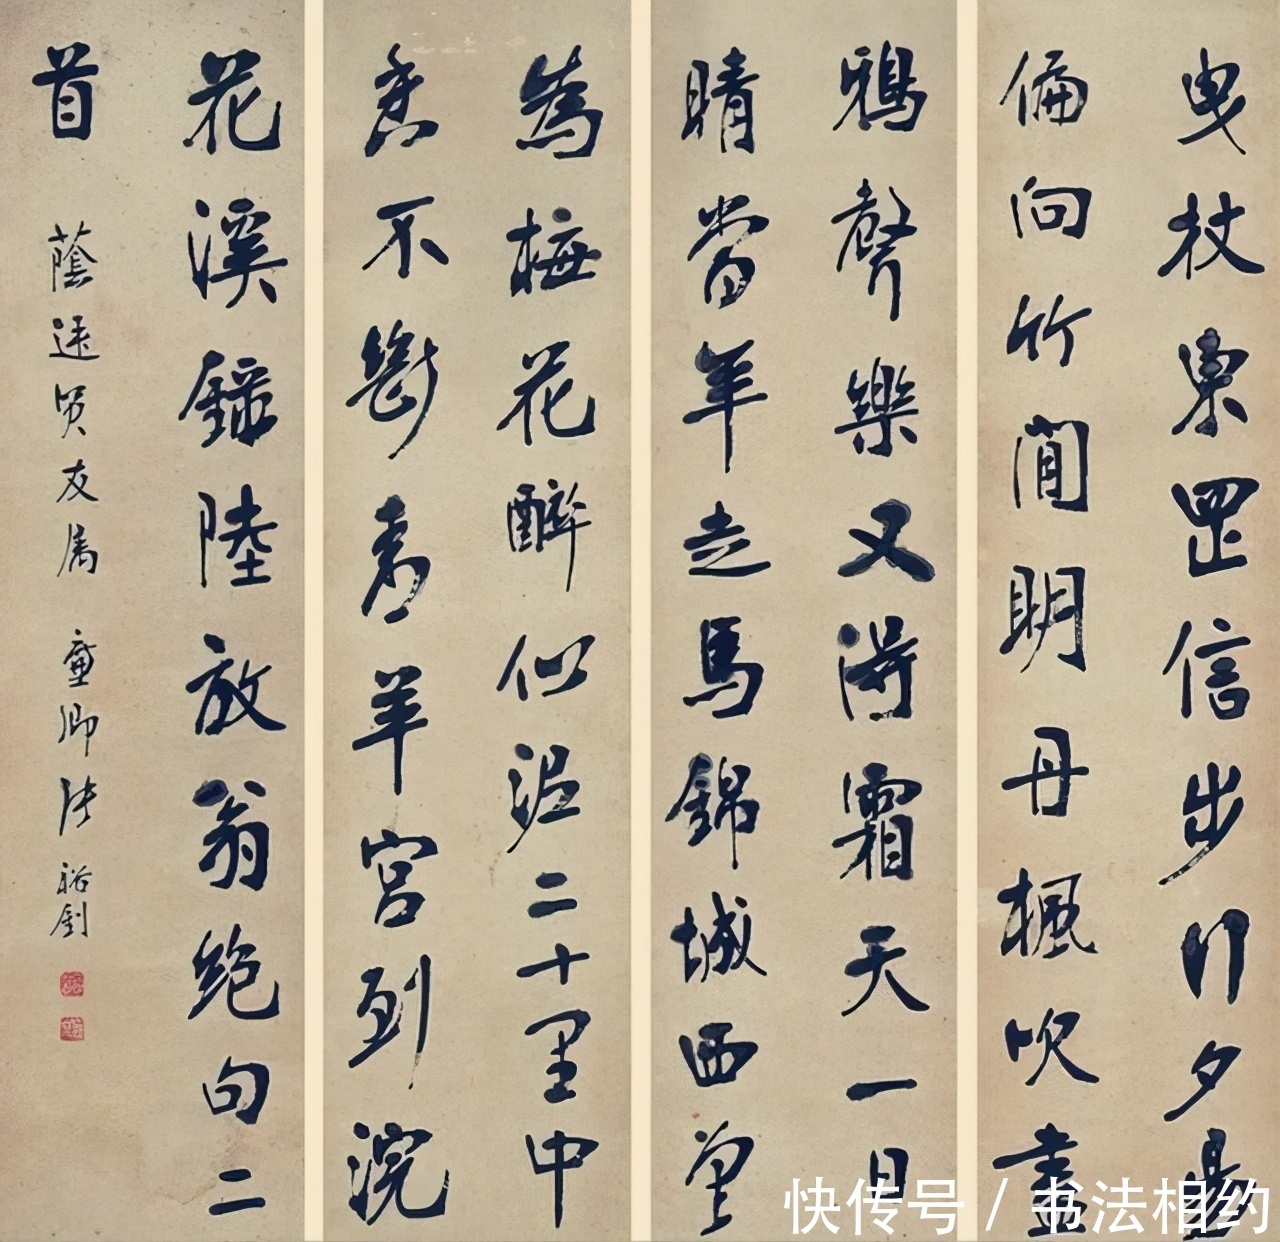 曳杖東罡信步行夕昜
偏向竹閒明丹楓吹盡
鴉聲樂又得霜天一日
晴當年走馬錦城西曾
為梅花醉似泥二十里中
香不斷青羊宮到浣
花溪錄陸放翁絕句二
首
蔭 賢友属 廉卿張裕釗
快传号 / 书法相约